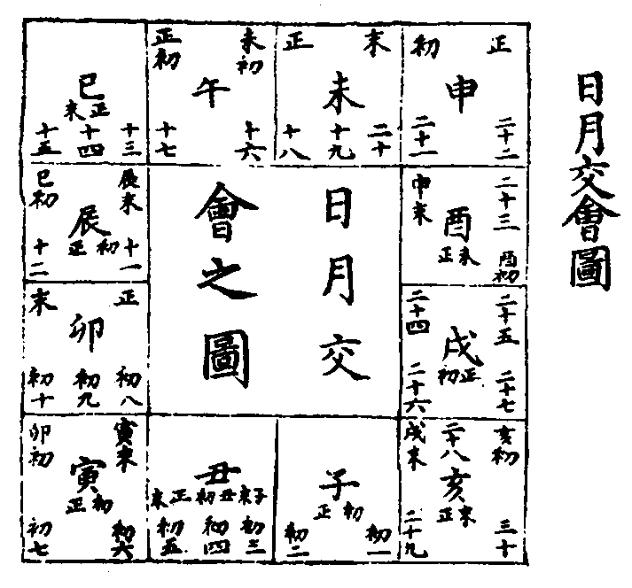 日月交會圖
日月交
會之圖
正
初
申
二十二
二十一
末
正
未
二十
十九
十八
未初
正初
午
十六
十七
巳
正末
十三
十四
十五
辰末
巳初
辰
初正
十一
十二
正
末
卯
初八
初九
初十
寅末
卯初
寅
初正
初六
初七
丑
子末丑初正末
初三
初四
初五
子
初正
初一
初二
亥初
二十八
戌末
亥
末正
三十
二十九
二十五
二十四
戌
正初
二十七
二十六
二十三
申末
酉
末正
酉初